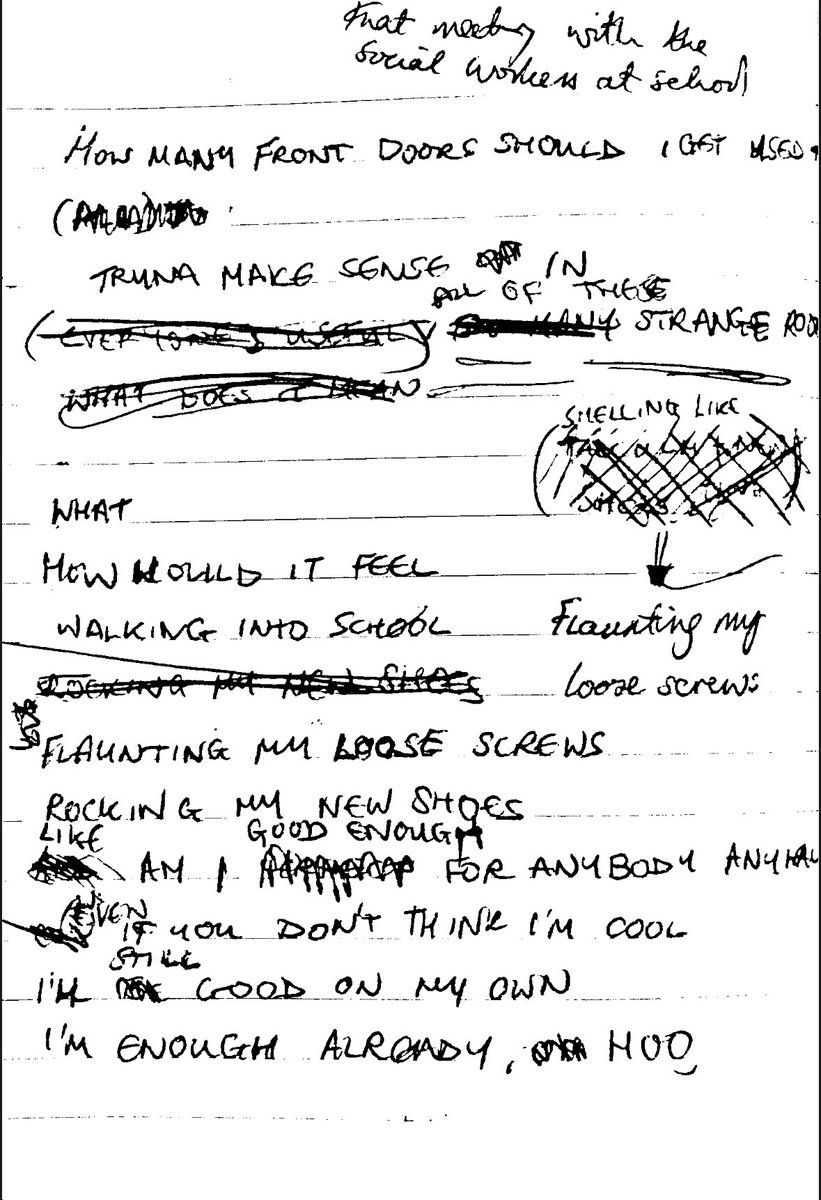 that meeting with the
social workers at school
HOW MANY FRONT DOORS SHOULD I GET USED
TRYNA MAKE SENSE IN
ALL OF THESE
STRANGE ROO
EVERYONE'S USEFUL
WHAT DOES IT MEAN
SMELLING LIKE
WHAT
HOW WOULD IT FEEL
WALKING INTO SCHOOL
Flaunting my
loose screws
ROCKING MY NEW SHOES
FLAUNTING MY LOOSE SCREWS
ROCKING MY NEW SHOES
LIKE GOOD ENOUGH
AM I FOR ANYBODY
EVEN
IF YOU DON'T THINK I'M COOL
STILL
I'M GOOD ON MY OWN
I'M ENOUGH ALREADY,